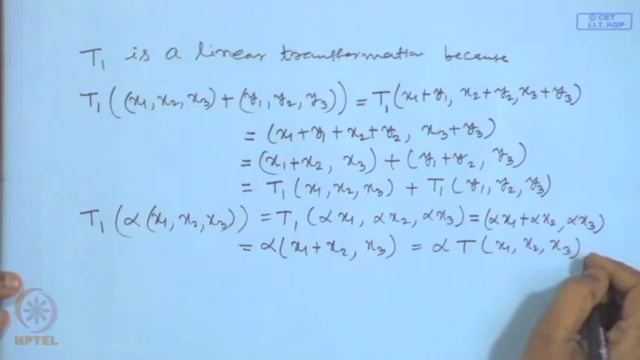 © CET
I.I.T. KGP
T₁ is a linear transformation because
T₁((x₁, x₂, x₃) + (y₁, y₂, y₃)) = T₁(x₁+y₁, x₂+y₂, x₃+y₃)
= (x₁+y₁+x₂+y₂, x₃+y₃)
= (x₁+x₂, x₃) + (y₁+y₂, y₃)
= T₁(x₁, x₂, x₃) + T₁(y₁, y₂, y₃)
T₁(α(x₁, x₂, x₃)) = T₁(αx₁, αx₂, αx₃) = (αx₁+αx₂, αx₃)
= α(x₁+x₂, x₃) = αT(x₁, x₂, x₃)
NPTEL